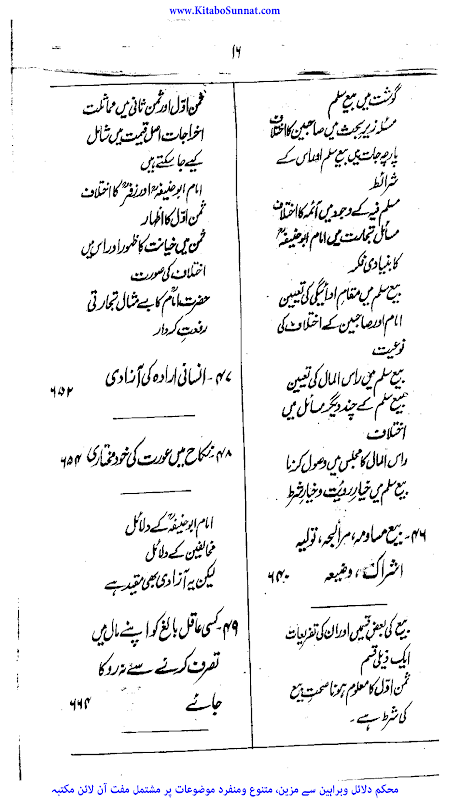 www.KitaboSunnat.com
۱۶
گوشت میں بیع سلم
مسئلہ زیر بحث میں صاحبین کا اختلاف
پارچہ جات میں بیع سلم اور اس کے
شرائط
مسلم فیہ کے وجود میں آئمہ کا اختلاف
مسائل تجارت میں امام ابو حنیفہؒ
کا بنیادی فکر
بیع سلم میں مقام ادائیگی کی تعیین
امام اور صاحبین کے اختلاف کی
نوعیت
بیع سلم میں راس المال کی تعیین
بیع سلم کے چند دیگر مسائل میں
اختلاف
راس المال کا مجلس میں وصول کرنا
بیع سلم میں خیار رویت و خیار شرط
۴۶۔ بیع مساومہ، مرابحہ، تولیہ
اشراک، وضیعہ ۶۴۰
بیع کی بعض قسمیں اور ان کی تفریعات
ایک ذیلی قسم
ثمن اوّل کا معلوم ہونا صحت بیع
کی شرط ہے۔
ثمن اوّل اور ثمن ثانی میں مماثلت
اخراجات اصل قیمت میں شامل
کیے جا سکتے ہیں
امام ابو حنیفہؒ اور زفرؒ کا اختلاف
ثمن اوّل کا اظہار
ثمن میں خیانت کا ظہور اور اس میں
اختلاف کی صورت
حضرت امامؒ کا بے مثال تجارتی
رفعت کردار
۴۷۔ انسانی ارادہ کی آزادی ۶۵۲
۴۸۔ نکاح میں عورت کی خود مختاری ۶۵۴
امام ابو حنیفہؒ کے دلائل
مخالفین کے دلائل
لیکن یہ آزادی بھی مقید ہے
۴۹۔ کسی عاقل بالغ کو اپنے مال میں
تصرف کرنے سے نہ روکا
جائے ۶۶۴
محکم دلائل وبراہین سے مزین، متنوع ومنفرد موضوعات پر مشتمل مفت آن لائن مکتبہ